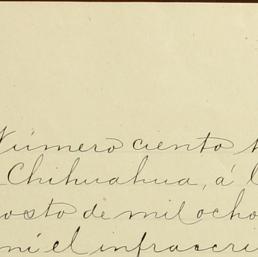 Número ciento
Chihuahua, á
de mil ocho
el infrascri